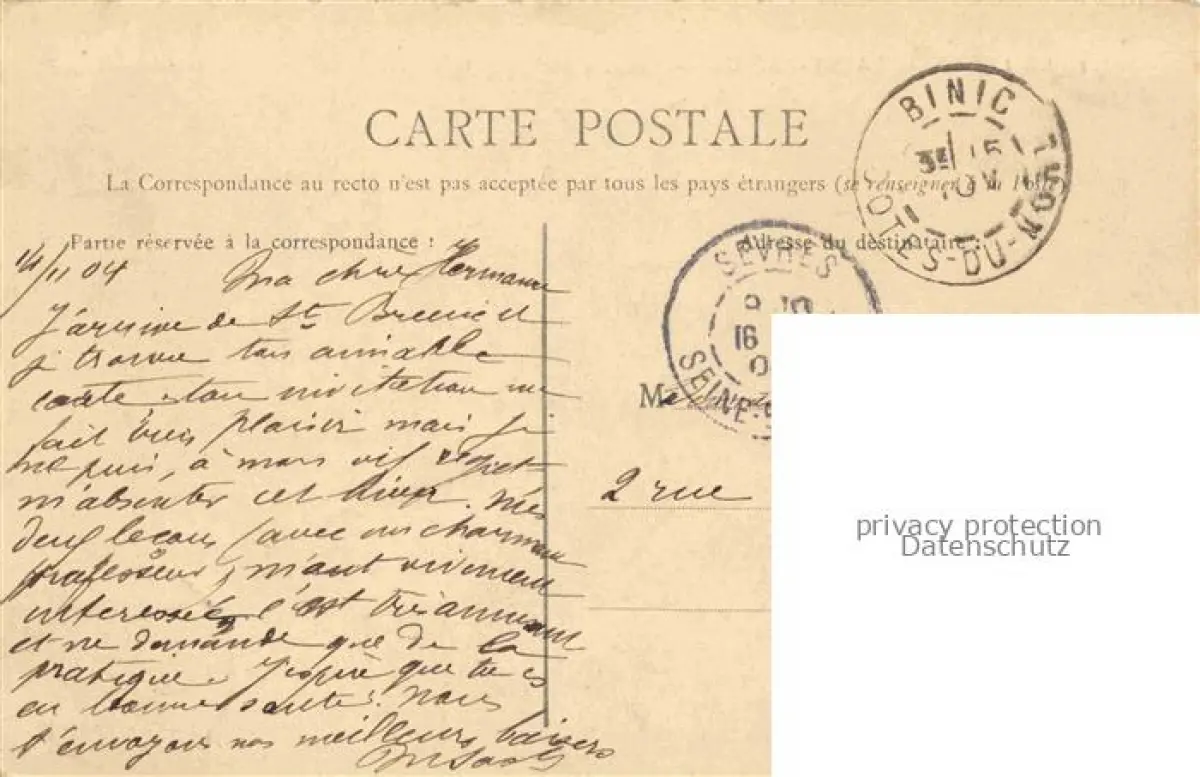 CARTE POSTALE
La Correspondance au recto n'est pas acceptée par tous les pays étrangers (se renseigner à la Poste
Partie réservée à la correspondance :
Adresse du destinataire :
BINIC
3E 15
COTES-DU-NORD
SEVRES
16
SEINE-
14/11 04
Ma chère Hermanne
J'arrive de St Brieuc et
je trouve ton aimable
carte ton invitation me
fait très plaisir mais je
ne puis, à mon vif regret
m'absenter cet hiver. Mes
deux leçons (avec un charmant
professeur) m'ont vivement
intéressée, c'est très amusant
et ne demande que de la
pratique. J'espère que tu es
en bonne santé. Nous
t'envoyons nos meilleurs baisers
M
2 rue
privacy protection
Datenschutz